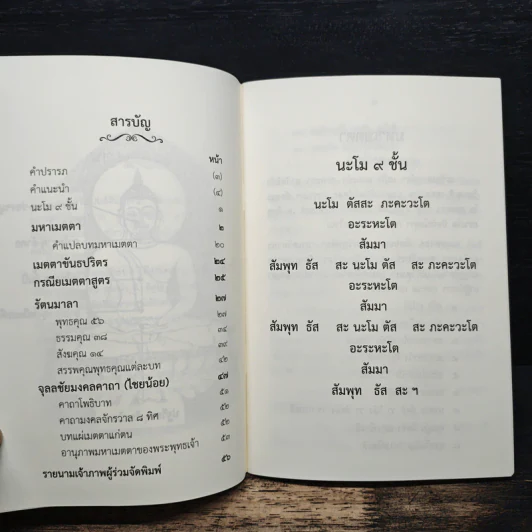 สารบัญ
หน้า
คำปรารภ (๑)
คำแนะนำ (๔)
นะโม ๙ ชั้น ๑
มหาเมตตา ๒
คำแปลบทมหาเมตตา ๒๐
เมตตาขันธปริตร ๒๔
กรณียเมตตาสูตร ๒๕
รัตนมาลา ๒๗
พุทธคุณ ๕๖ ๒๗
ธรรมคุณ ๓๘ ๓๔
สังฆคุณ ๑๔ ๓๙
สรรพคุณพุทธคุณแต่ละบท ๔๒
จุลลชัยมงคลคาถา (ไชยน้อย) ๔๗
คาถาโพธิบาท ๕๑
คาถามงคลจักรวาล ๘ ทิศ ๕๒
บทแผ่เมตตาแก่ตน ๕๒
อานุภาพมหาเมตตาของพระพุทธเจ้า ๕๓
รายนามเจ้าภาพผู้ร่วมจัดพิมพ์ ๕๖
นะโม ๙ ชั้น
นะโม ตัสสะ ภะคะวะโต
อะระหะโต
สัมมา
สัมพุท ธัส สะ นะโม ตัส สะ ภะคะวะโต
อะระหะโต
สัมมา
สัมพุท ธัส สะ นะโม ตัส สะ ภะคะวะโต
อะระหะโต
สัมมา
สัมพุท ธัส สะ ฯ